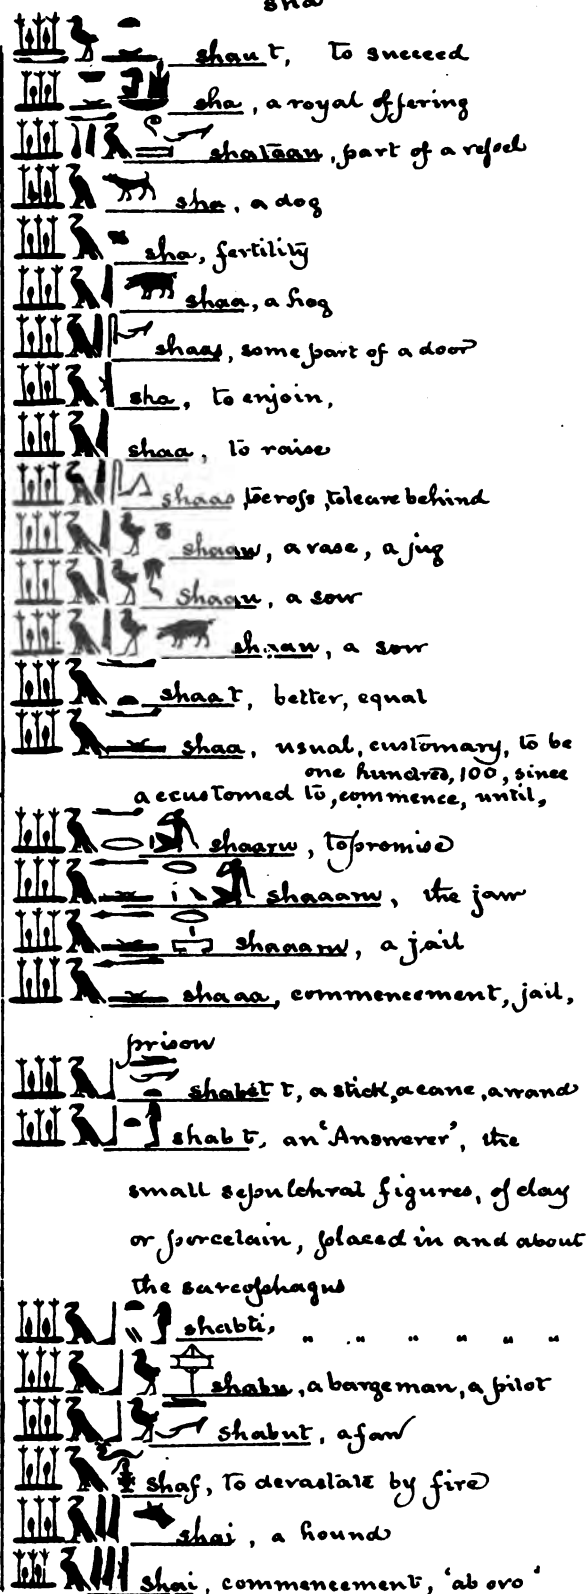 sha
shaut, to succeed
sha, a royal offering
shataan, part of a vessel
sha, a dog
sha, fertility
shaa, a hog
shaas, some part of a door
sha, to enjoin,
shaa, to raise
shaas, to cross, to leave behind
shaau, a vase, a jug
shaau, a sow
shaau, a sow
shaat, better, equal
shaa, usual, customary, to be
one hundred, 100, since
accustomed to, commence, until,
shaaru, to promise
shaaaru, the jaw
shaaaru, a jail
shaaa, commencement, jail,
prison
a stick, a cane, a wand
shabt, an 'Answerer', the
small sepulchral figures, of clay
or porcelain, placed in and about
the sarcophagus
shabti, " " " " " "
shabu, a bargeman, a pilot
shabut,
shaf, to devastate by fire
shai, a hound
shai, commencement, 'ab ovo'